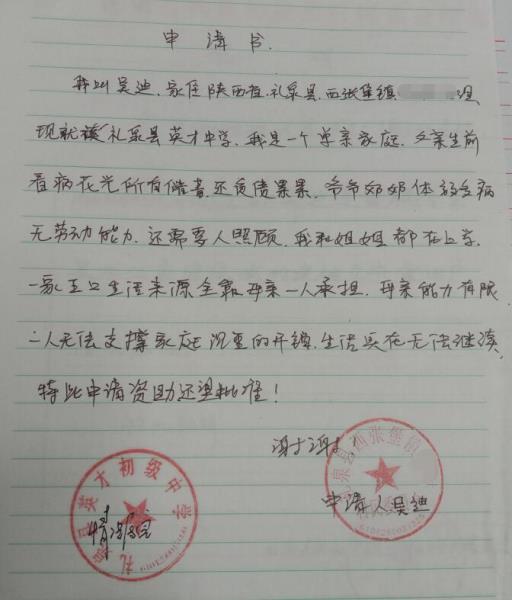 申请书.
我叫吴迪.家住陕西省.礼泉县.西张堡镇 组
现就读礼泉县英才中学.我是一个单亲家庭.父亲生前
看病花光所有储蓄还负债累累.爷爷奶奶体弱多病
无劳动能力.还需要人照顾.我和姐姐都在上学.
一家五口生活来源全靠母亲一人承担.母亲能力有限
一人无法支撑家庭沉重的开销.生活实在无法继续.
特此申请资助还望批准!
谢谢!
申请人吴迪
情况属实
礼泉县英才初级中学
礼泉县西张堡镇